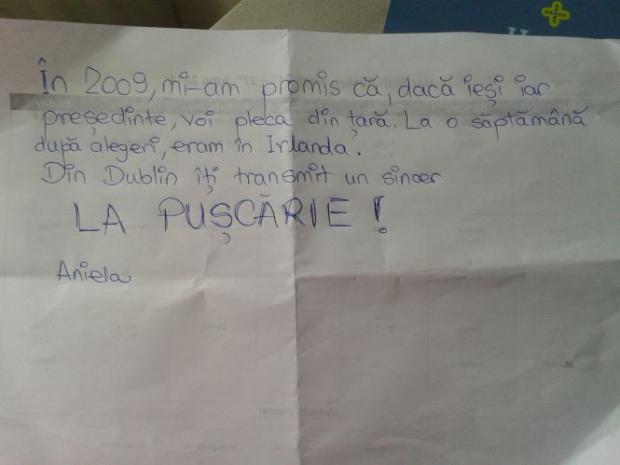 În 2009, mi-am promis că, dacă ieși iar
președinte, voi pleca din țară. La o săptămână
după alegeri, eram în Irlanda.
Din Dublin îți transmit un sincer
LA PUȘCĂRIE!
Aniela